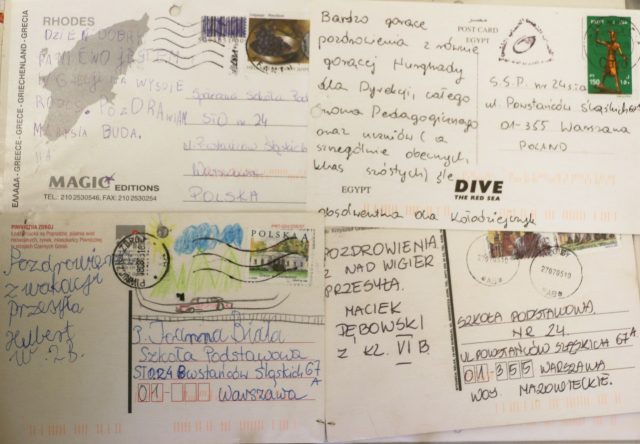 ΕΛΛΑΔΑ - GREECE - GRECE - GRIECHENLAND - GRECIA
RHODES
DZIEŃ DOBRY
PANI EWO JESTEM
W GRECJI NA WYSPIE
RODOS. POZDRAWIAM
MARYSIA BUDA.
II A
MAGIC EDITIONS
TEL: 210 2530546, FAX: 210 2530254
Społeczna Szkoła Pod
STO nr 24
ul. Powstańców Śląskich
Warszawa
POLSKA
Bardzo gorące
pozdrowienia z równie
gorącej Hurghady
dla Dyrekcji, całego
Grona Pedagogicznego
oraz uczniów (a
szczególnie obecnych
klas szóstych) śle
EGYPT
Kołodziejczyk
POST CARD
EGYPT
150
S.S.P. nr 24
ul. Powstańców Śląskich 67
01-355 Warszawa
POLAND
DIVE
THE RED SEA
PIWNICZNA ZDRÓJ
Pozdrowienia
z wakacji
przesyła
Hubert
W. 2B.
POLSKA
P. Joanna Biała
Szkoła Podstawowa
STO 24 Powstańców Śląskich 67
A
01- Warszawa
POZDROWIENIA
NAD WIGIER
PRZESYŁA
MACIEK
DĘBOWSKI
Z KL. VI B.
SZKOŁA PODSTAWOWA
NR 24
UL POWSTAŃCÓW ŚLĄSKICH 67A
01-355 WARSZAWA
WOJ MAZOWIECKIE.